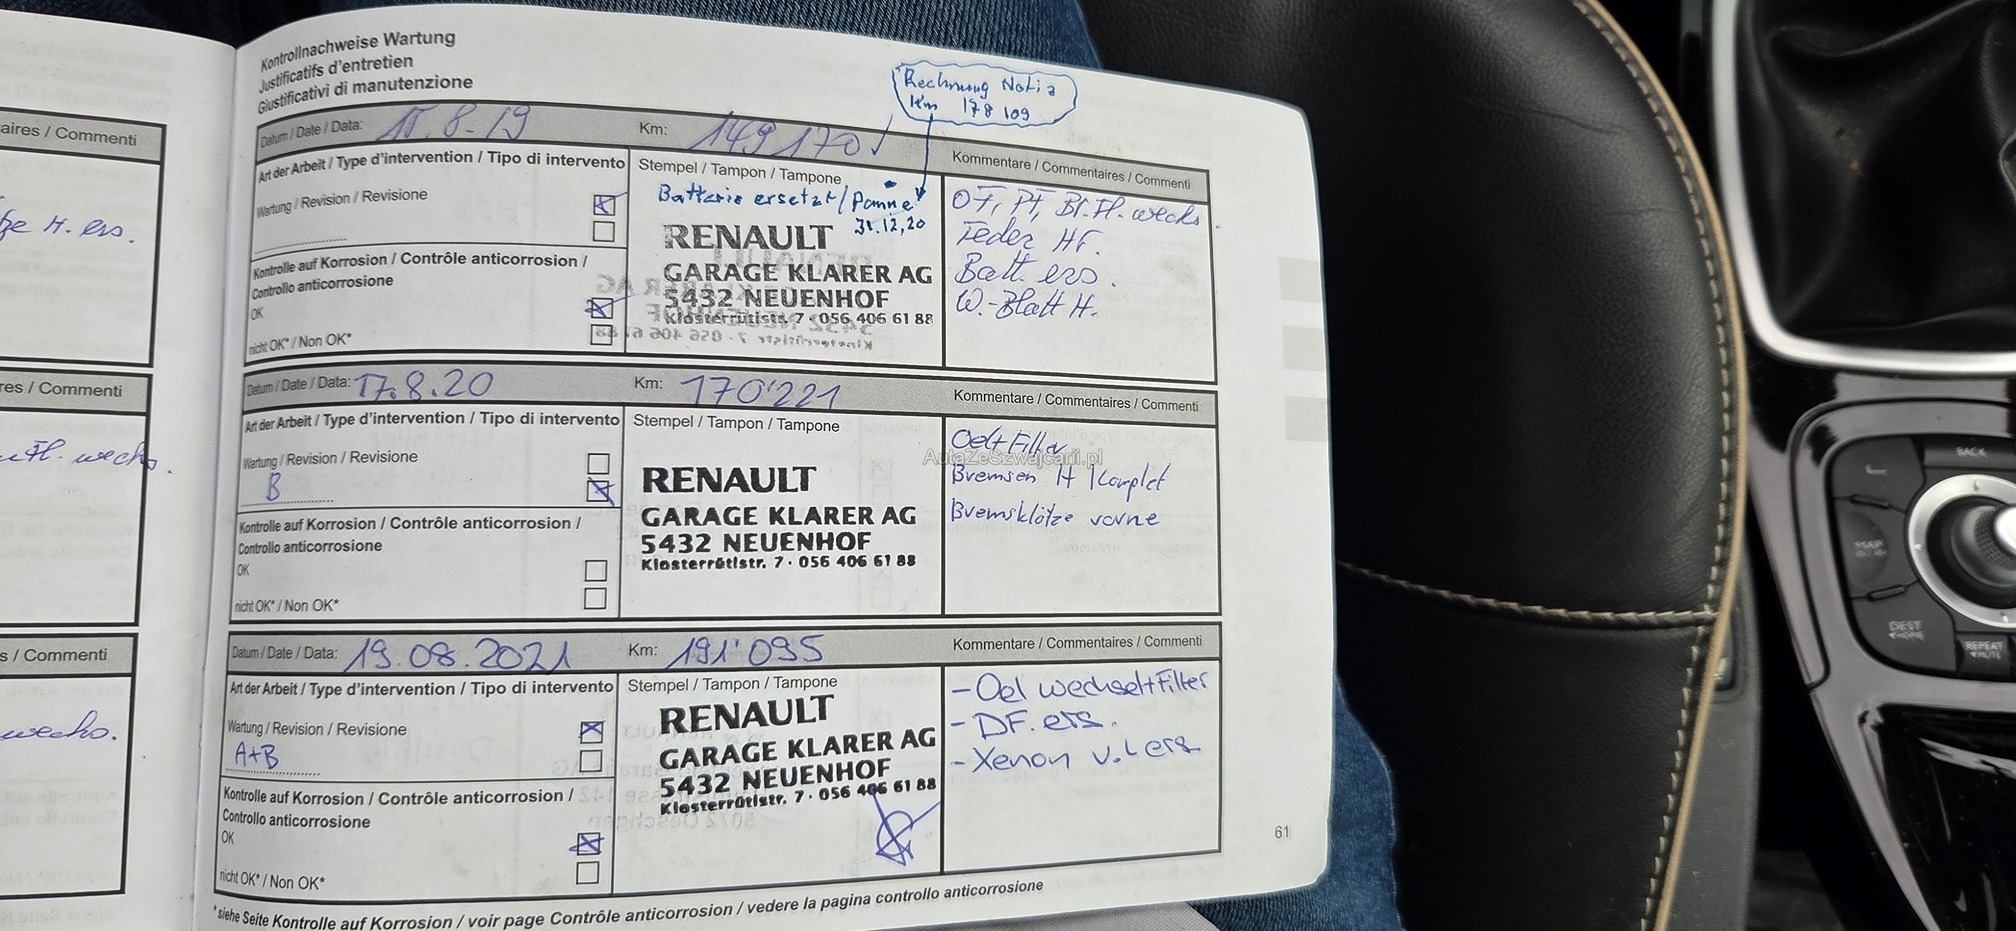 aires / Commenti
H. ers.
res / Commenti
Fl. wechs.
s / Commenti
wechs.
Kontrollnachweise Wartung
Justificatifs d'entretien
Giustificativi di manutenzione
Rechnung Notiz
Km 178 109
Datum / Date / Data: 15.8-19 Km: 149 170
Art der Arbeit / Type d'intervention / Tipo di intervento
Stempel / Tampon / Tampone
Kommentare / Commentaires / Commenti
Wartung / Revision / Revisione
Batterie ersetzt / Panne
31.12.20
RENAULT
GARAGE KLARER AG
5432 NEUENHOF
Klosterrütistr. 7 · 056 406 61 88
Kontrolle auf Korrosion / Contrôle anticorrosion /
Controllo anticorrosione
OK
nicht OK* / Non OK*
OF, PF, Br. Fl. wechs
Feder HF.
Batt. ers.
W.-Blatt H.
Datum / Date / Data: 17.8.20 Km: 170'221
Kommentare / Commentaires / Commenti
Art der Arbeit / Type d'intervention / Tipo di intervento
Stempel / Tampon / Tampone
Wartung / Revision / Revisione
B
RENAULT
GARAGE KLARER AG
5432 NEUENHOF
Klosterrütistr. 7 · 056 406 61 88
Kontrolle auf Korrosion / Contrôle anticorrosion /
Controllo anticorrosione
OK
nicht OK* / Non OK*
Oel+Filter
AutaZeSzwajcarii.pl
Bremsen H Komplet
Bremsklötze vorne
Datum / Date / Data: 19.08.2021 Km: 191'095
Kommentare / Commentaires / Commenti
Art der Arbeit / Type d'intervention / Tipo di intervento
Stempel / Tampon / Tampone
Wartung / Revision / Revisione
A+B
RENAULT
GARAGE KLARER AG
5432 NEUENHOF
Klosterrütistr. 7 · 056 406 61 88
Kontrolle auf Korrosion / Contrôle anticorrosion /
Controllo anticorrosione
OK
nicht OK* / Non OK*
- Oel wechsel+Filter
- DF. ers.
- Xenon v. L ers
61
*siehe Seite Kontrolle auf Korrosion / voir page Contrôle anticorrosion / vedere la pagina controllo anticorrosione
BACK
MAP
DEST
HOME
REPEAT
MUTE